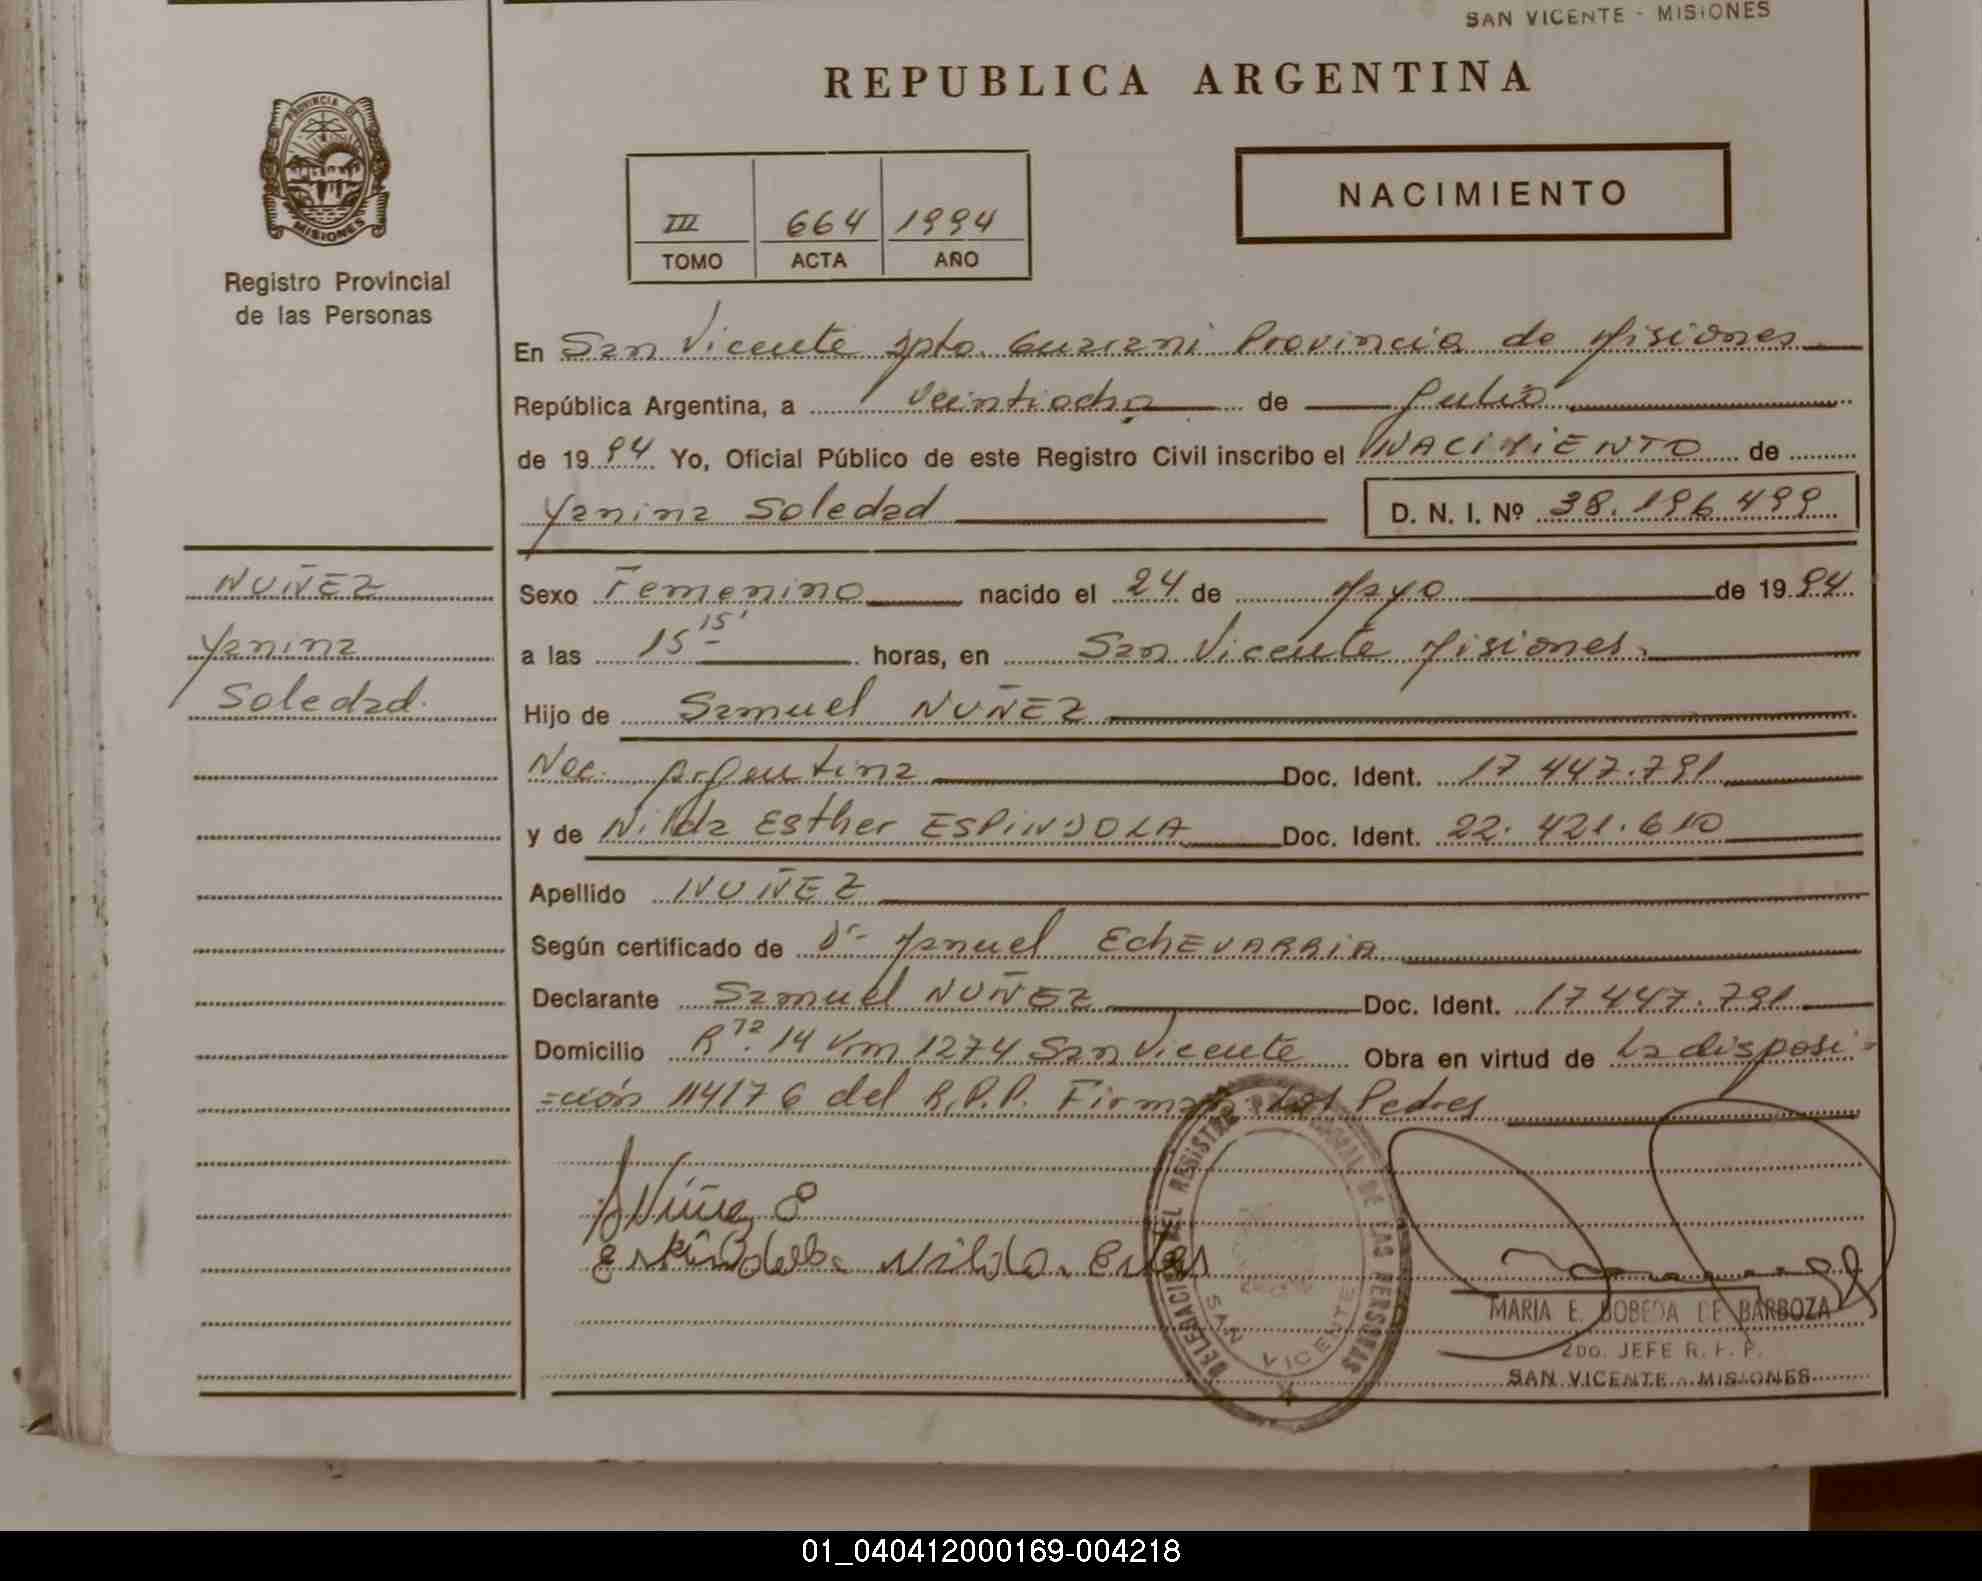 SAN VICENTE - MISIONES
REPUBLICA ARGENTINA
PROVINCIA DE
MISIONES
Registro Provincial
de las Personas
III 664 1994
TOMO ACTA AÑO
NACIMIENTO
En San Vicente Dpto. Guarani Provincia de Misiones
República Argentina, a Veintiocho de Julio
de 1994 Yo, Oficial Público de este Registro Civil inscribo el NACIMIENTO de
Yanina Soledad D. N. I. Nº 38.196.499
NUÑEZ
Yanina
Soledad.
Sexo Femenino nacido el 24 de Mayo de 1994
a las 15 15' horas, en San Vicente Misiones.
Hijo de Samuel NUÑEZ
Nac. Argentina Doc. Ident. 17 447.791
y de Nilda Esther ESPINDOLA Doc. Ident. 22.421.610
Apellido NUÑEZ
Según certificado de Dr- Manuel EchEVARRIA
Declarante Samuel NUÑEZ Doc. Ident. 17447.791
Domicilio Rta. 14 Km 1274 San Vicente Obra en virtud de La disposi=
=ción 114176 del R.P.P. Firman Los Padres
Espindola Nilda
DELEGACION DEL REGISTRO PROVINCIAL DE LAS PERSONAS
SAN VICENTE
MARIA E. BOBEDA DE BARBOZA
2DO. JEFE R. P. P.
SAN VICENTE - MISIONES
01_040412000169-004218